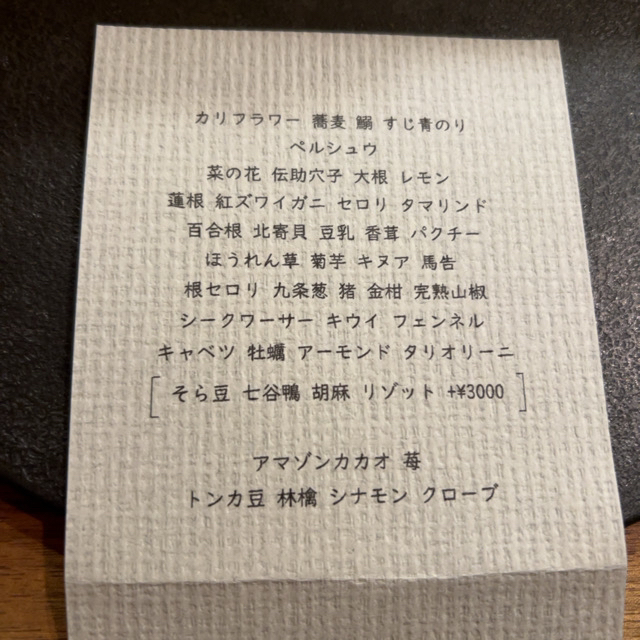 カリフラワー 蕎麦 鰯 すじ青のり
ペルシュウ
菜の花 伝助穴子 大根 レモン
蓮根 紅ズワイガニ セロリ タマリンド
百合根 北寄貝 豆乳 香茸 パクチー
ほうれん草 菊芋 キヌア 馬告
根セロリ 九条葱 猪 金柑 完熟山椒
シークワーサー キウイ フェンネル
キャベツ 牡蠣 アーモンド タリオリーニ
[そら豆 七谷鴨 胡麻 リゾット +¥3000]
アマゾンカカオ 苺
トンカ豆 林檎 シナモン クローブ